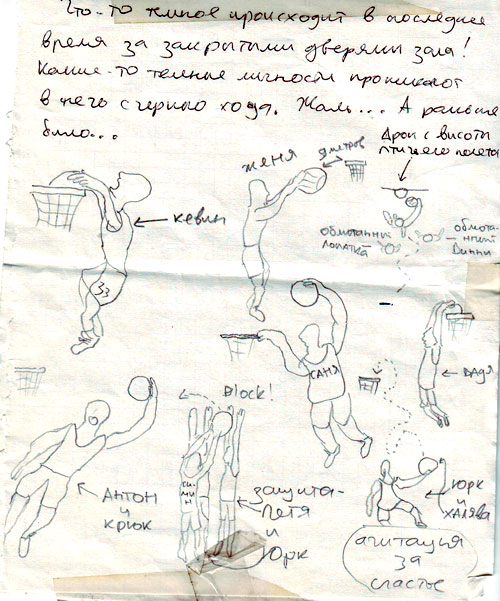 Что-то темное происходит в последнее
время за закрытыми дверями зала!
Какие-то темные личности проникают
в него с черного хода. Жаль... А раньше
было...
Дрон с высоты
птичьего полета
Женя
9 метров
Кевин
обмотанный
лопатка
обмота-
нный
Винни
33
САНЯ
ВАДЯ
Block!
Антон
и
крюк
СИ
МИ
Н
защита-
Петя
и
Юрк
Юрк
и
ХАЛЯВА
агитация
за
счастье